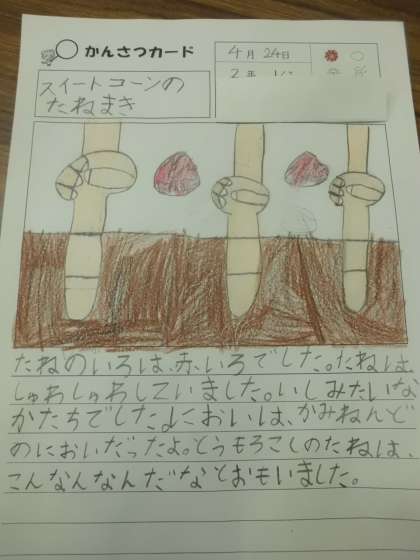 かんさつカード
4月24日
2年
スイートコーンの
たねまき
たねのいろは、赤いろでした。たねは、
しゅわしゅわしていました。いしみたいな
かたちでした。においは、かみねんど
のにおいだったよ。とうもろこしのたねは、
こんなんなんだなとおもいました。